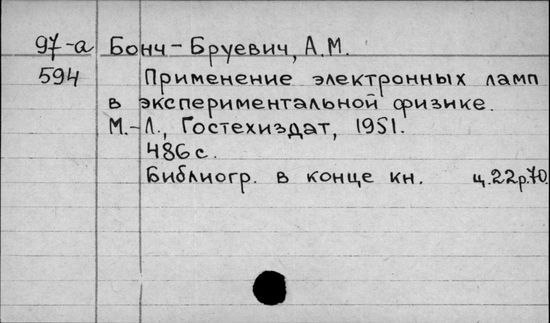 97-а Бонч-Бруевич, А.М.
594 Применение электронных ламп
в экспериментальной физике.
М.-Л., Гостехиздат, 1951.
486 с.
Библиогр. в конце кн. ц.22р.70.